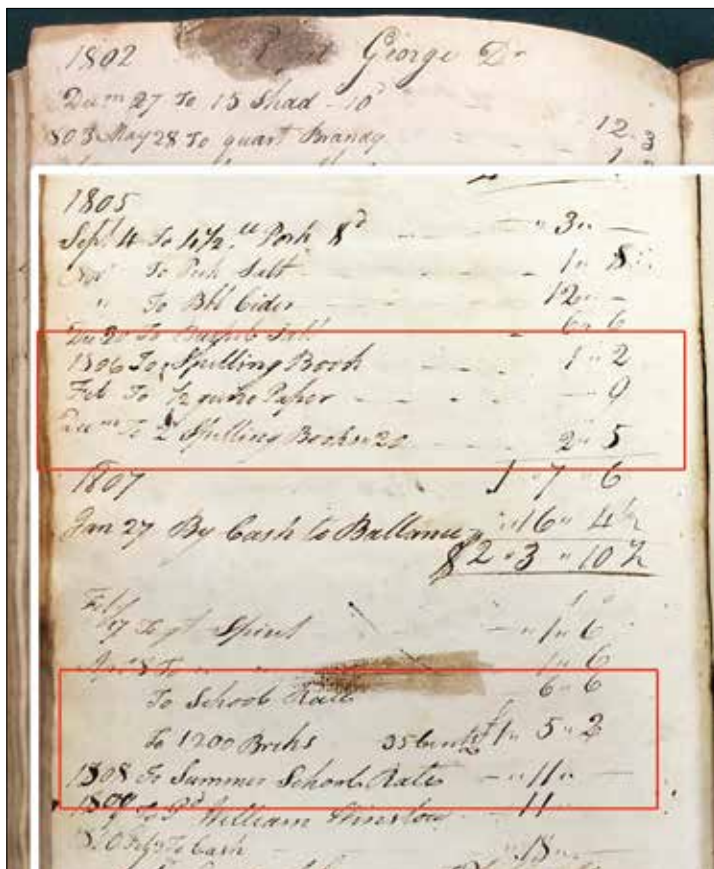 1802 George Dr
Decm 27 To 15 Shad 10d
1803 May 28 To quart Brandy 12 3
1805
Sept 4 To 4½ lb Pork 8d 3
To Peck Salt 1 8
" To Bbl Cider 12
Dec 20 To Bushel Salt 6 6
1806 To Spelling Book 1 " 2
Feb To ½ quire Paper 9
Decm To 2 Spelling Books 20 2 " 5
1 " 7 " 6
1807
Jan 27 By Cash to Ballance " 16 " 4½
2 " 3 " 10½
Feby 17 To qt Spirit " 1 " 6
Apr 8 To " " 1 " 6
To School Rate 6 " 6
To 1200 Bricks 1 " 5 " 2
1808 To Summer School Rate " 11 "
1809 To Pd William Winslow 11
To Cash